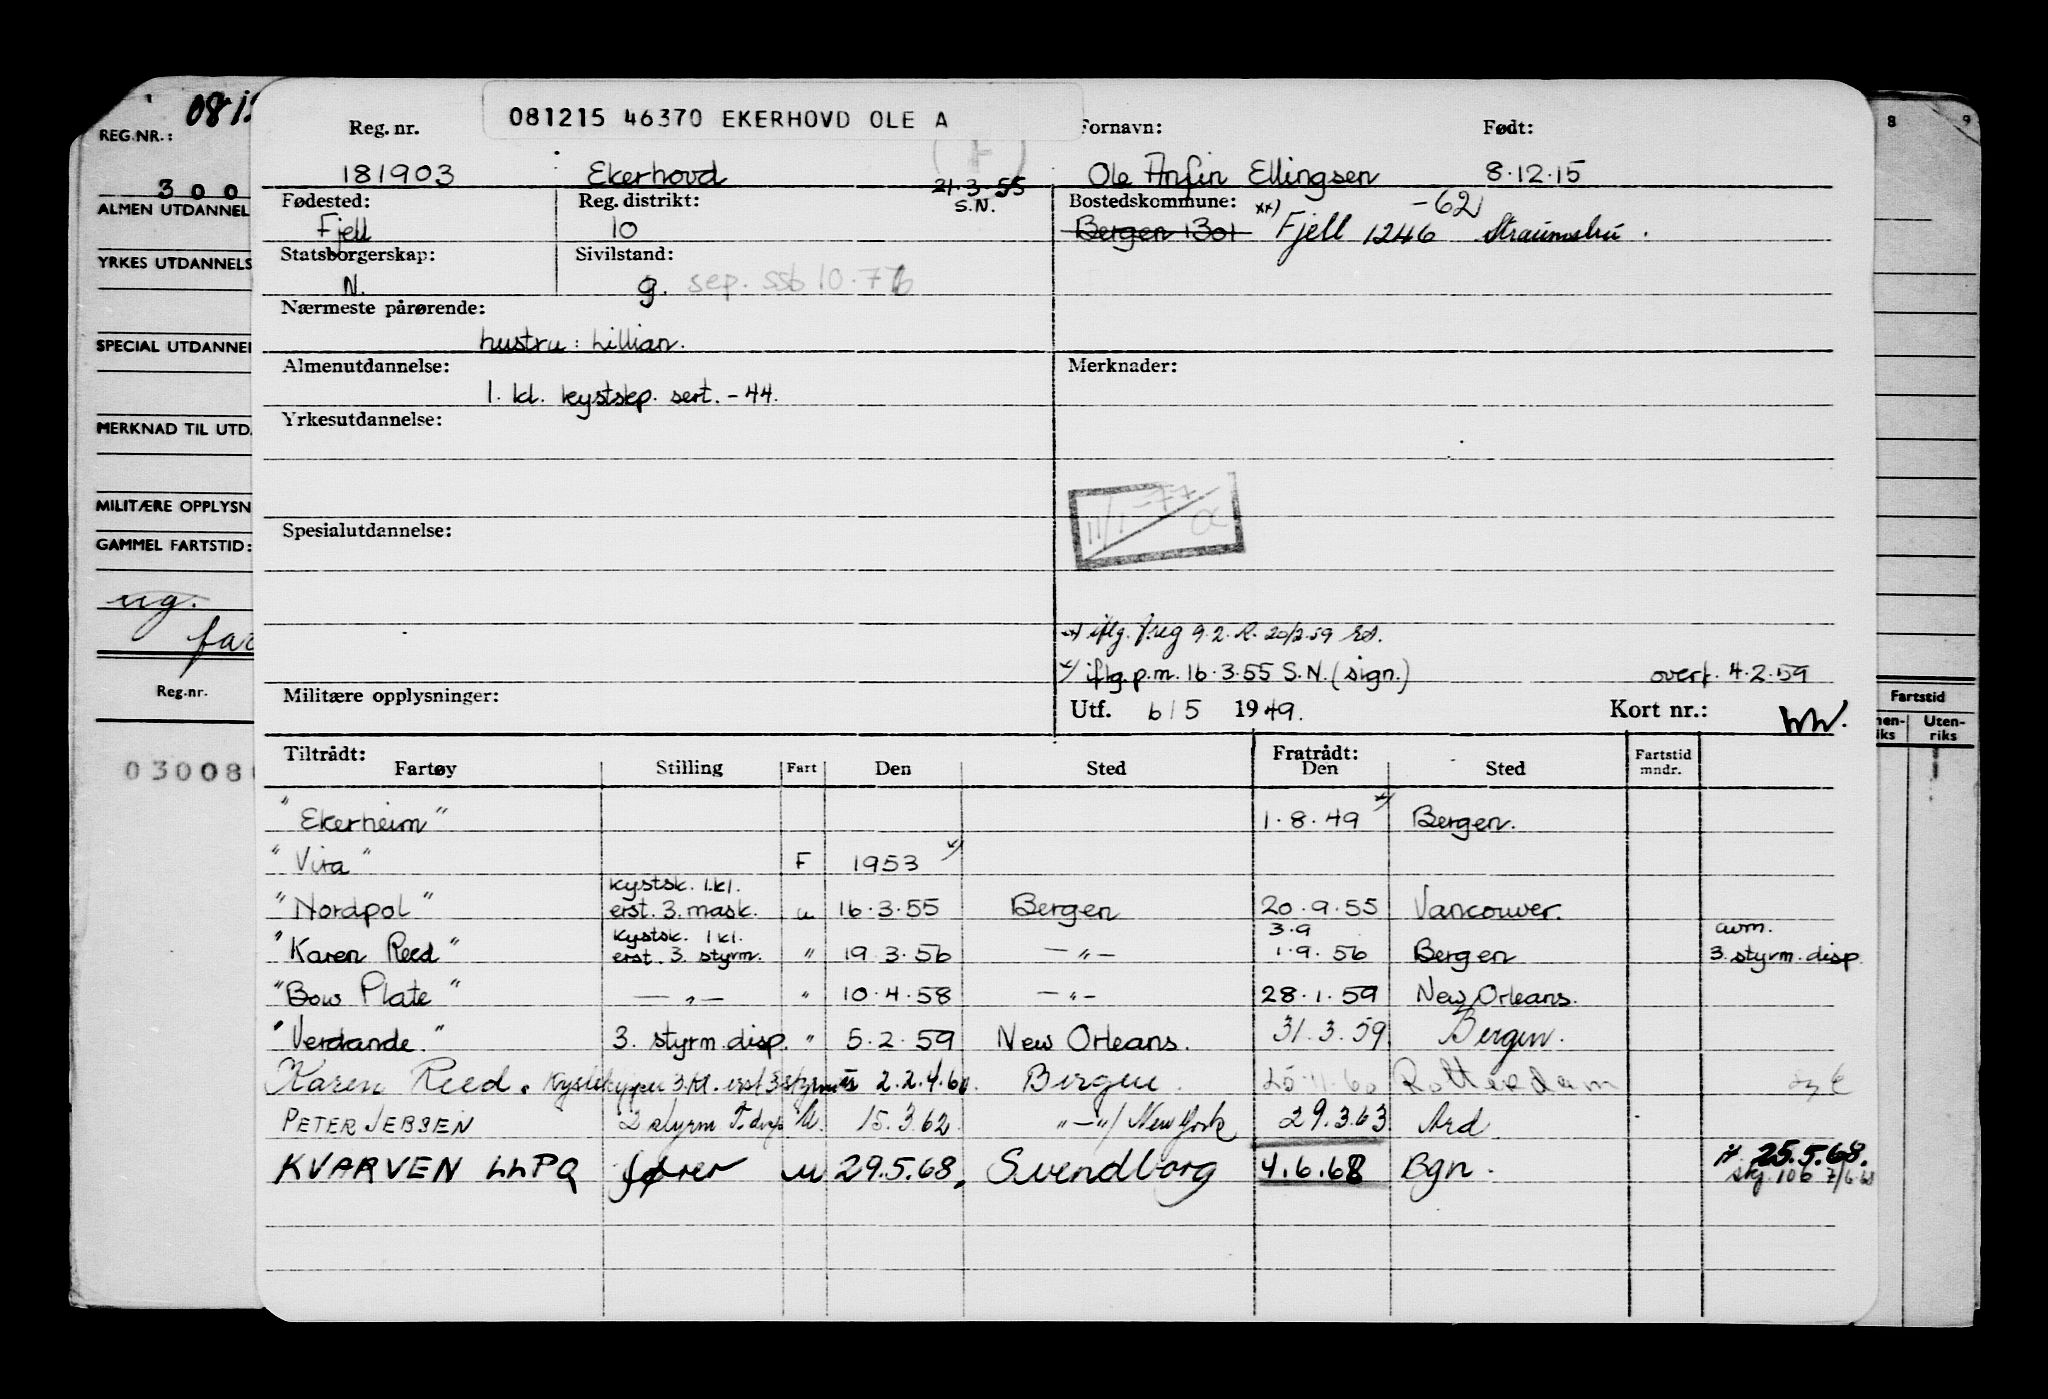 0815
REG.NR.:
300
ALMEN UTDANNEL
YRKES UTDANNELS
SPECIAL UTDANNEL
MERKNAD TIL UTD.
MILITÆRE OPPLYSN
GAMMEL FARTSTID:
ug.
Reg.nr.
03008
8 9
Fartstid
Uten-riks
Reg. nr. 081215 46370 EKERHOVD OLE A Fornavn: Født:
181903 Ekerhovd 21.3.55 S.N. Ole Anfin Ellingsen 8.12.15
Fødested: Reg. distrikt: Bostedskommune: -62
Fjell 10 Bergen 1301 xx) Fjell 1246 Straumsbru.
Statsborgerskap: Sivilstand:
N. g. sep. ssb 10.776
Nærmeste pårørende:
hustru: Lillian.
Almenutdannelse: Merknader:
1. kl. kystskp. sert. -44.
Yrkesutdannelse:
11/1-77
Spesialutdannelse:
xx) iflg. f.reg 9.2. R. 20/2.59
x) iflg. p.m. 16.3.55 S.N. (sign.) overf. 4.2.59
Militære opplysninger: Utf. 6/5 1949. Kort nr.:
Tiltrådt: Fratrådt:
Fartøy Stilling Fart Den Sted Den Sted Fartstid mndr.
"Ekerheim" 1.8.49 x) Bergen.
"Vira" F 1953 x)
"Nordpol" kystsk. 1.kl. erst. 3. mask. u 16.3.55 Bergen 20.9.55 Vancouver.
"Karen Reed" kystsk. 1 kl. erst. 3. styrm. " 19.3.56 —"— 3.9 1.9.56 Bergen avm. 3. styrm. disp.
"Bow Plate" —"— " 10.4.58 —"— 28.1.59 New Orleans.
"Verdande." 3. styrm. disp. " 5.2.59 New Orleans. 31.3.59 Bergen.
Karen Reed. Kystskipper 3.kl. erst 3 styrm 2.2.4.60. Bergen. 25.11.60 Rotterdam
PETER JEBSEN 2 styrm U. 15.3.62 "—"/ New York 29.3.63 Ard
KVARVEN LLPQ fører u 29.5.68. Svendborg 4.6.68 Bgn. 25.5.68.
skj. 106 7/6.68